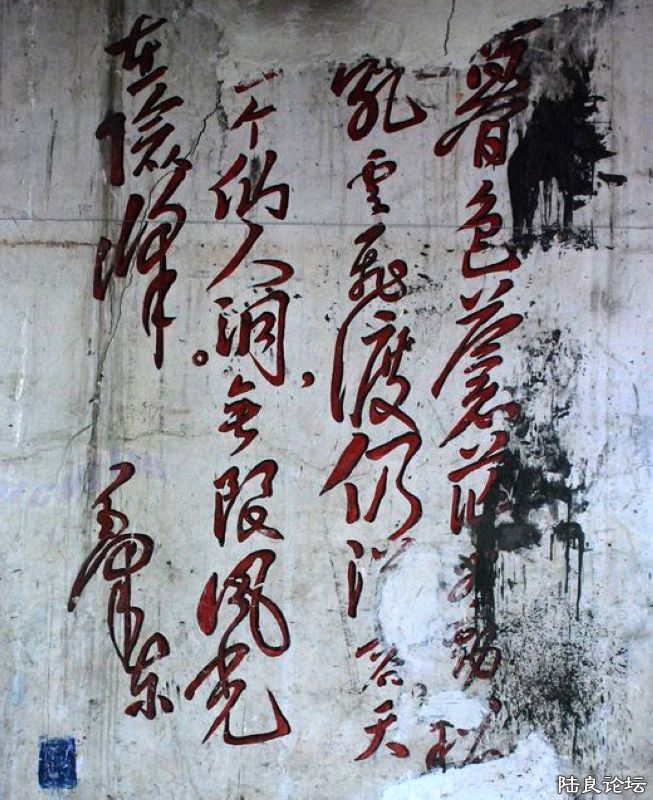 暮色蒼茫看劲松
乱雲飞渡仍容天
一个仙人洞,无限風光
在險峰。
毛泽东
陆良论坛